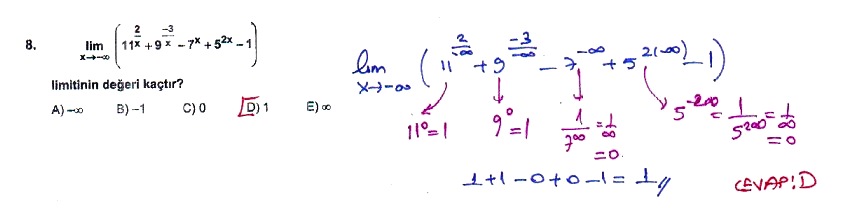 8. lim x→-∞ (11^(2/x) + 9^(-3/x) - 7^x + 5^(2x) - 1)
limitinin değeri kaçtır?
A) -∞ B) -1 C) 0 D) 1 E) ∞
lim x→-∞ (11^(2/-∞) + 9^(-3/-∞) - 7^(-∞) + 5^(2(-∞)) - 1)
11^0 = 1 9^0 = 1 1/7^∞ = 1/∞ = 0 5^(-2∞) = 1/5^(2∞) = 1/∞ = 0
1+1-0+0-1 = 1//
CEVAP: D